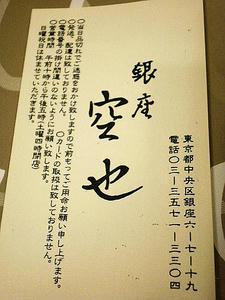 東京都中央区銀座六ー七ー十九
電話〇三ー三五七一ー三三〇四
銀座
空也
〇カードの取扱は致しておりません。
〇当日品切れでご迷惑をおかけ致しますので前もってご用命お願い申し上げます。
〇発送、配達は致しておりません。
〇電話番号の掛け間違いのないようにお願い致します。
〇営業時間 午前十時から午後五時(土曜四時閉店)
日曜祝日は休ませていただきます。